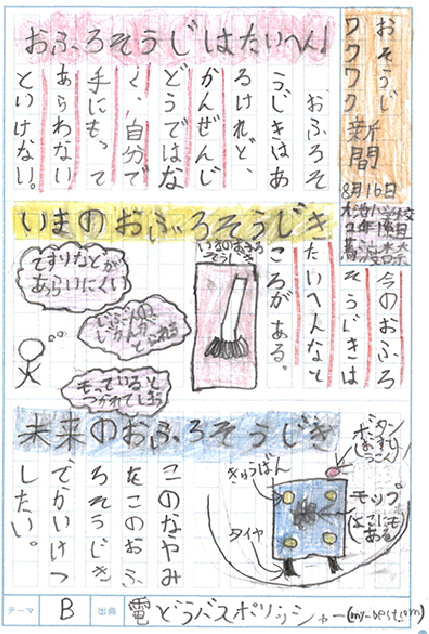 おそうじ
ワクワク新聞
8月16日
おふろそうじはたいへん!
おふろそ
うじきはあ
るけれど、
かんぜんじ
どうではな
く、自分で
手にもって
あらわない
といけない。
いまのおふろそうじき
今のおふろ
そうじきは
たいへんなと
ころがある。
いまのおふろ
そうじき
てすりなどが
あらいにくい
もっていると
つかれてしまう
未来のおふろそうじき
ボタン
きゅうばん
モップ
タイヤ
このなやみ
をこのおふ
ろそうじき
でかいけつ
したい。
テーマ
B
出典
電どうバスポリッシャー(my-best.com)